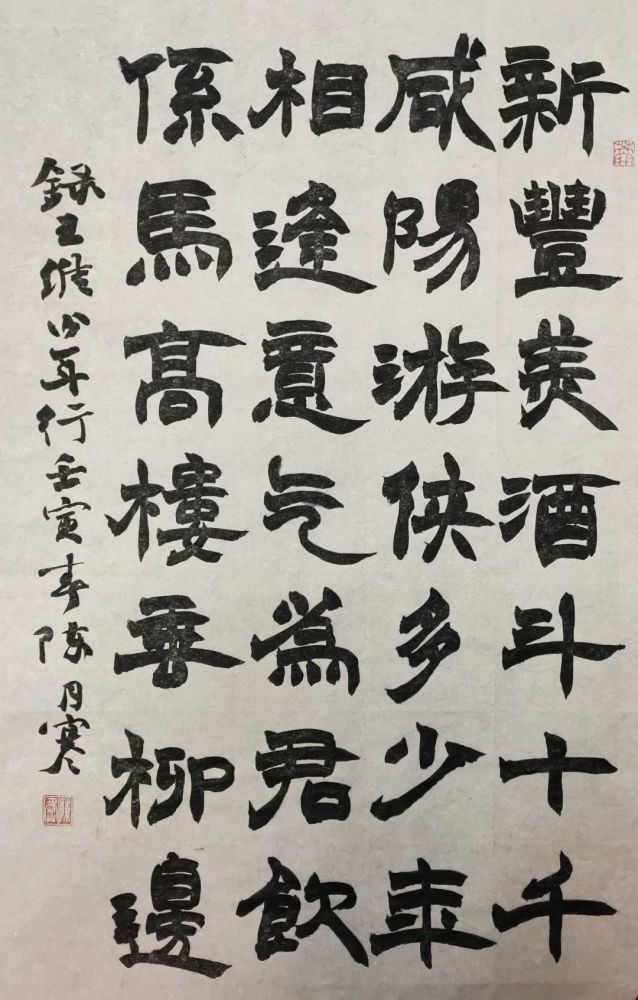 新豐美酒斗十千
咸陽游俠多少年
相逢意气為君飲
係馬高樓垂柳邊
録王維少年行壬寅春陈月寒